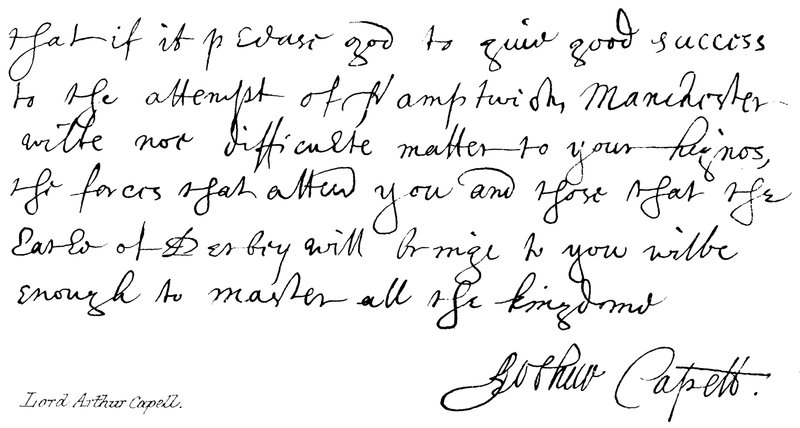 that if it please god to giue good success
to the attempt of Namptwich, Manchester
wilbe noe difficulte matter to your hignos,
the forces that attend you and those that the
Earle of Derbey will bringe to you wilbe
enough to master all the kingdome
Arthur Capell.
Lord Arthur Capell.